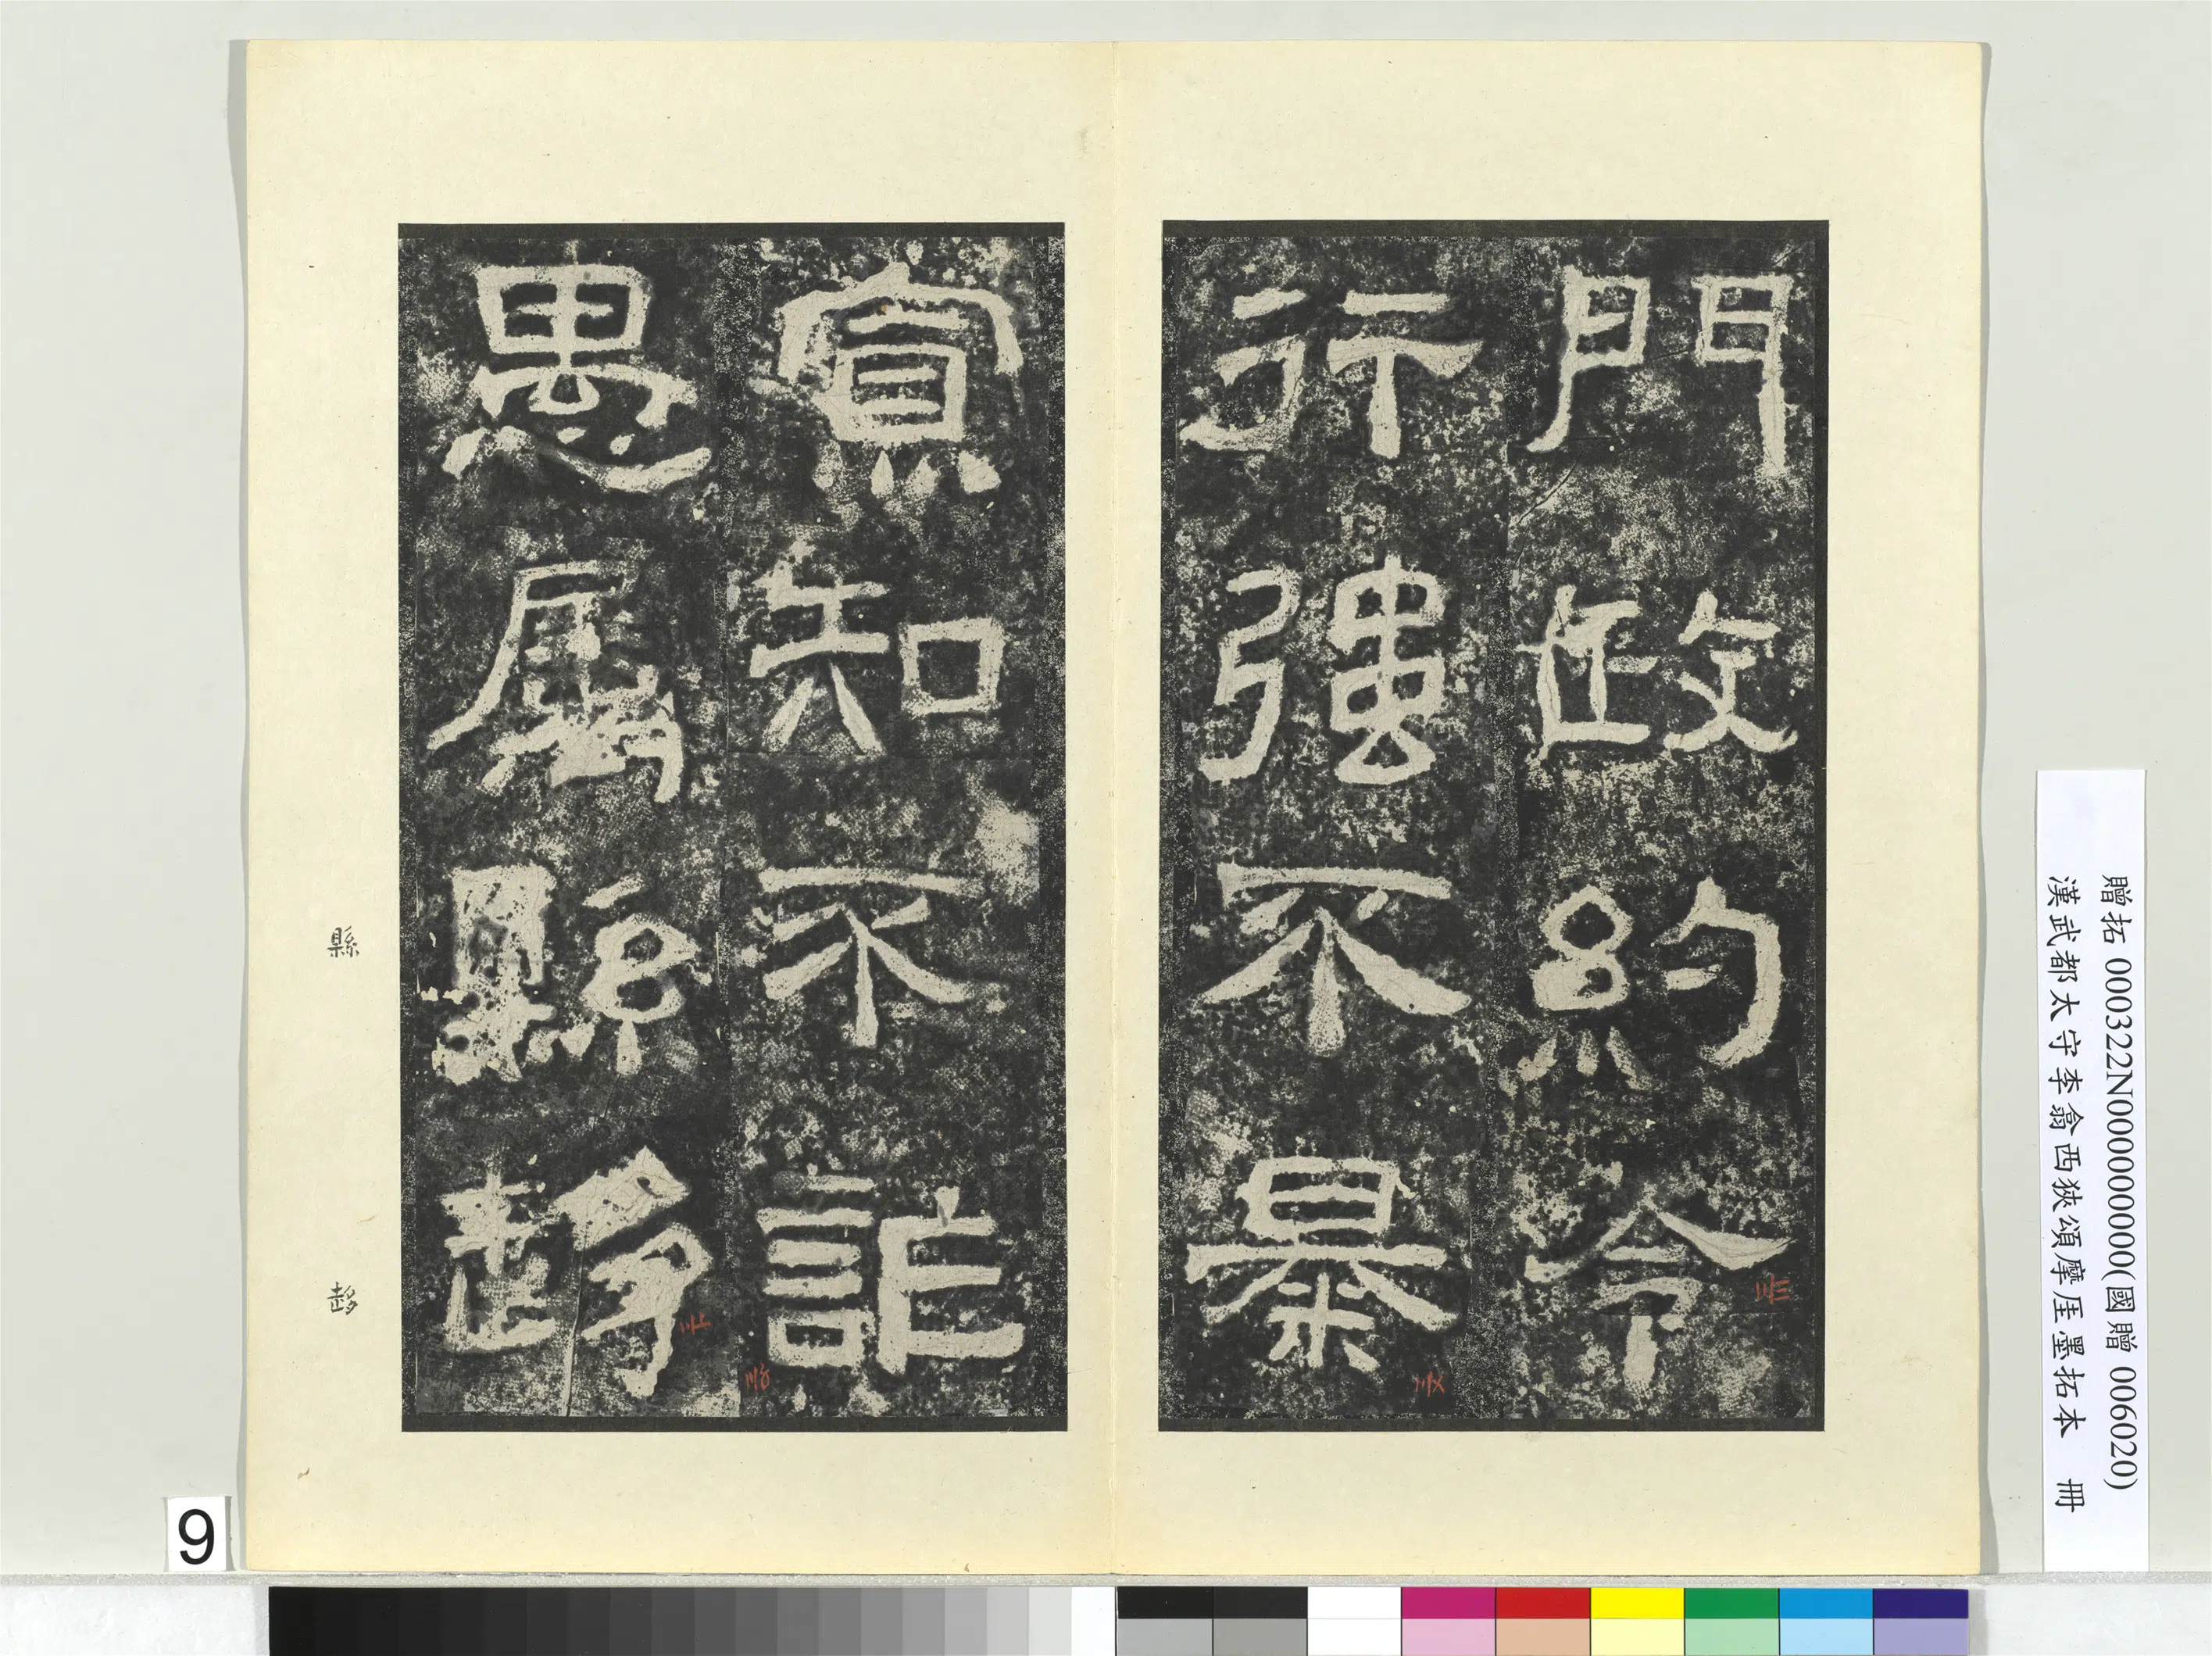 門政約令
行強不暴
寡知不詐
愚屬縣趍
縣
趍
贈拓 000322N000000000(國贈 006020)
漢武都太守李翕西狹頌摩厓墨拓本 冊
9